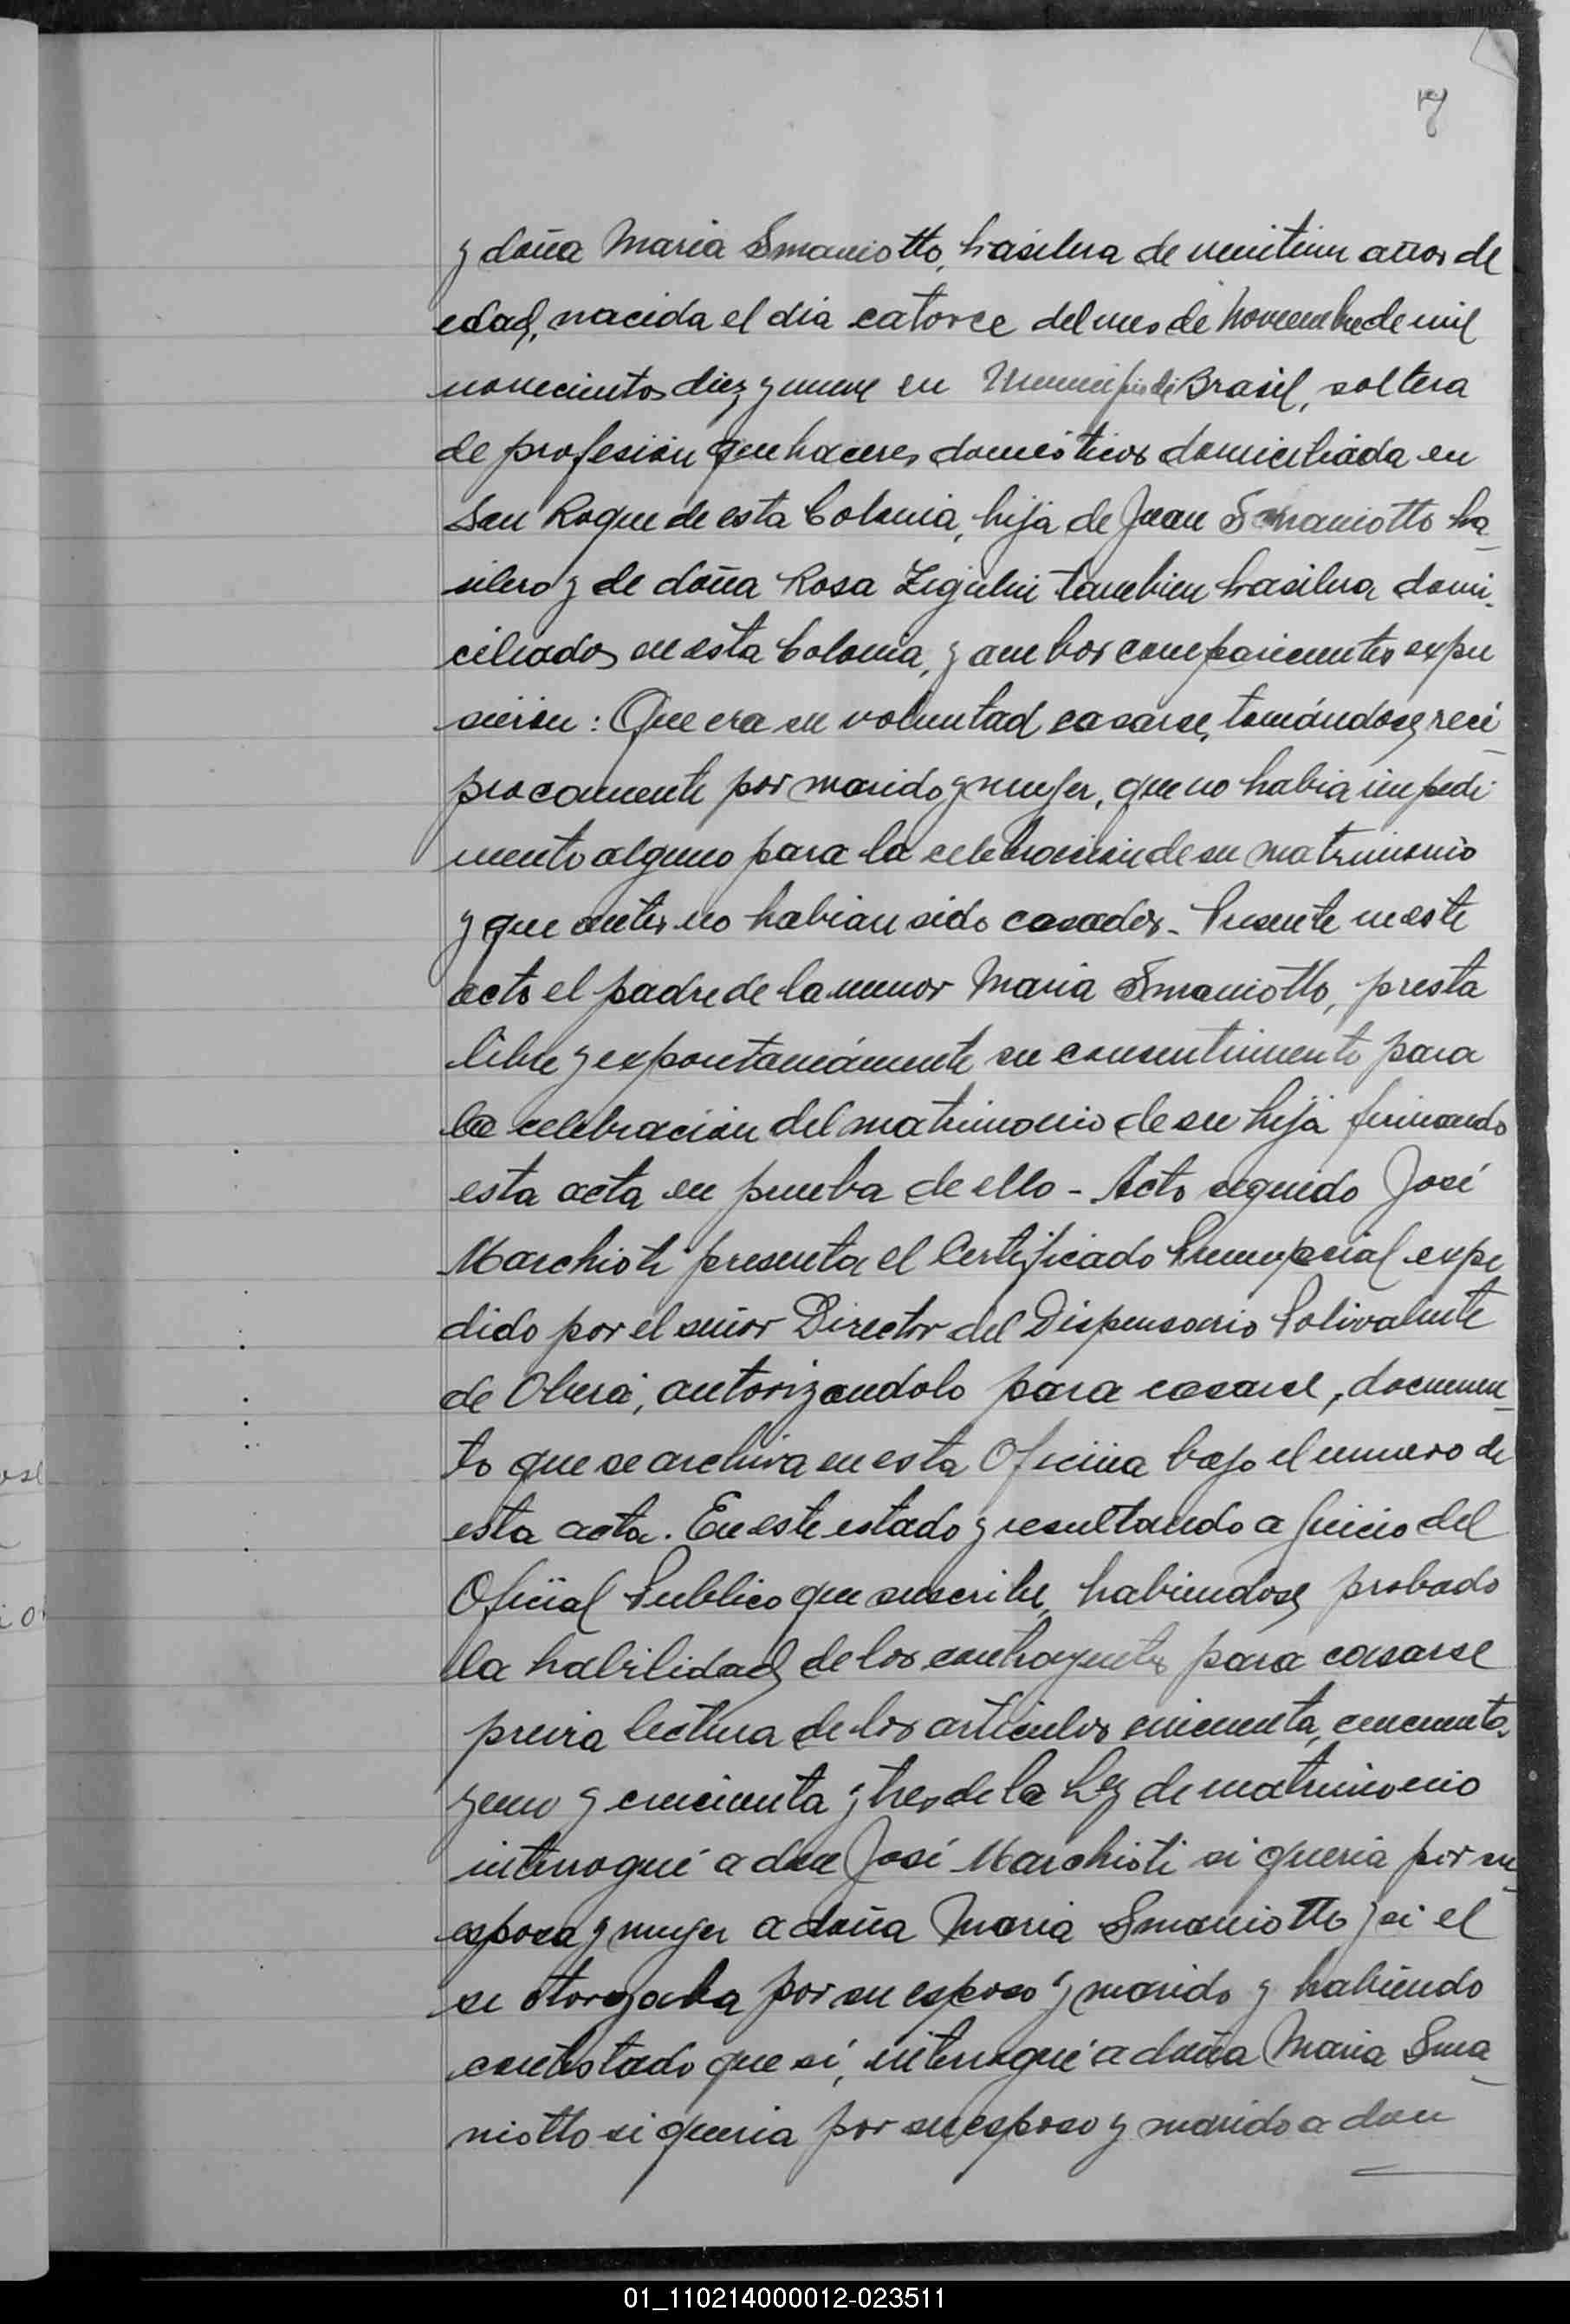 7
y doña Maria Smaniotto, brasilera de veintiun años de
edad, nacida el dia catorce del mes de Noviembre de mil
novecientos diez y nueve en Brasil, soltera
de profesión quehaceres domésticos domiciliada en
San Roque de esta Colonia, hija de Juan Smaniotto bra_
silero y de doña Rosa tambien brasilera domi_
ciliados en esta Colonia, y ambos comparecientes expu
sieron: Que era su voluntad casarse, tomándose reci_
procamente por marido y mujer, que no habia impedi
mento alguno para la celebracion de su matrimonio
y que antes no habian sido casados - Presente en este
acto el padre de la menor Maria Smaniotto, presta
libre y expontaneámente su consentimiento para
la celebración del matrimonio de su hija firmando
esta acta en prueba de ello - Acto seguido José
Marchioti presenta el Certificado Prenupcial expe
dido por el señor Director del Dispensario Polivalente
de Oberá, autorizandolo para casarse, documen_
to que se archiva en esta Oficina bajo el numero de
esta acta. En este estado y resultando a juicio del
Oficial Publico que suscribe, habiendose probado
la habilidad de los contrayentes para casarse
previa lectura de los articulos cincuenta, cincuenta
y uno y cincuenta y tres de la Ley de matrimonio
interrogué a don José Marchioti si queria por su_
esposa y mujer a doña Maria Smaniotto y si el
se otorgaba por su esposo y marido y habiendo
contestado que sí, interrogué a doña Maria Sma_
niotto si queria por su esposo y marido a don
01_110214000012-023511